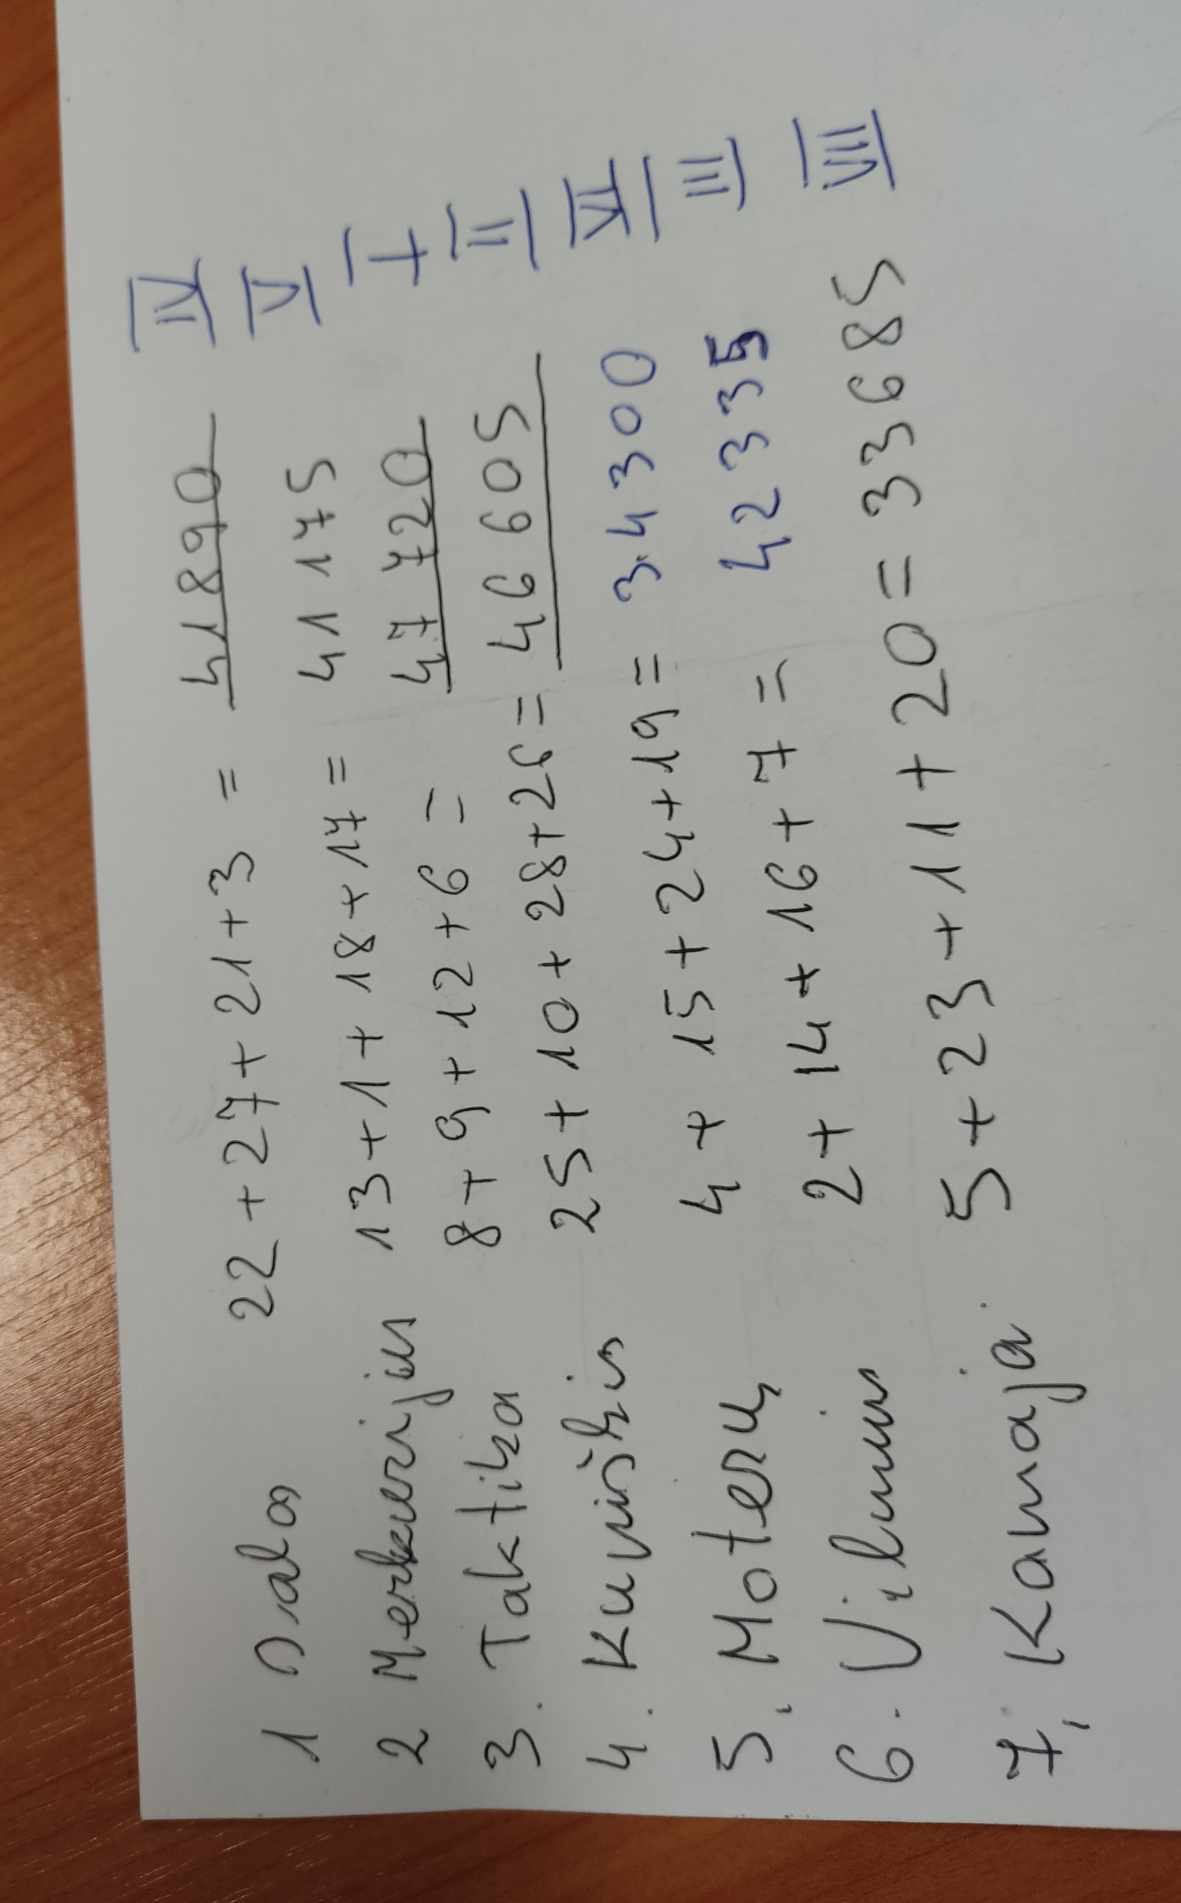 1 Dalos 22+27+21+3 = 41890 IV
2 Merkurijus 13+1+18+17= 41 175 V
3. Taktika 8+9+12+6 = 47 720 I
4. Kuviškis 25+10+28+26= 46 605 II
5. Moterų 4+15+24+19= 34300 VI
6. Vilnius 2+14+16+7= 42335 III
7. Kamaja 5+23+11+20= 33685 VII